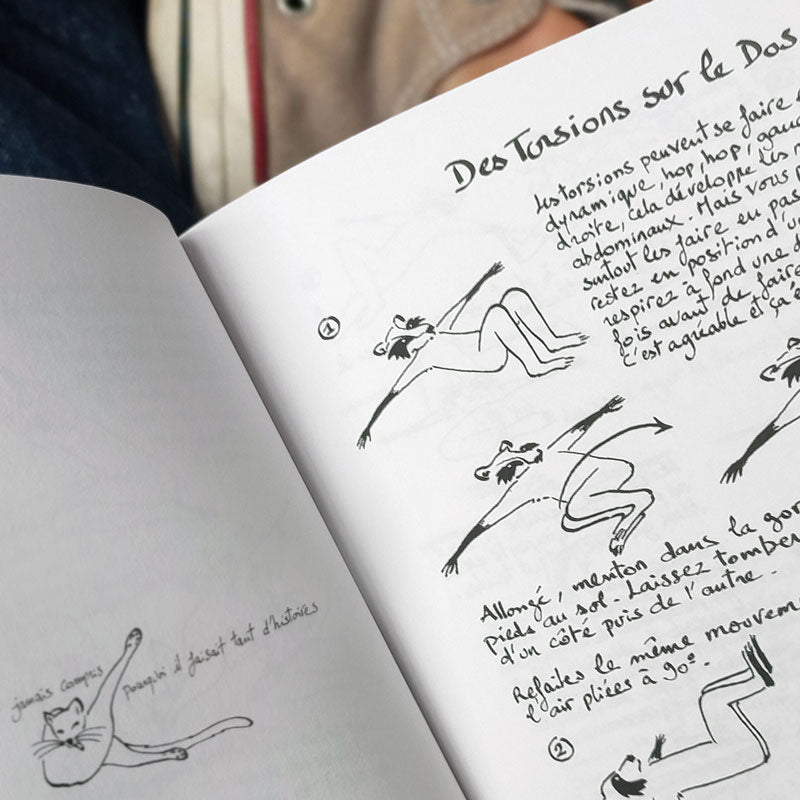 jamais compris pourquoi il faisait tant d'histoires
Des Torsions sur le Dos
Les torsions peuvent se faire
dynamique, hop, hop,
droite, cela développe les
abdominaux. Mais vous
surtout les faire en
restez en position
respirez à fond une
fois avant de faire
c'est agréable et ça
1
Allongé, menton dans la
pieds au sol. Laissez tomber
d'un côté puis de l'autre.
Refaites le même
l'air pliées à 90°.
2